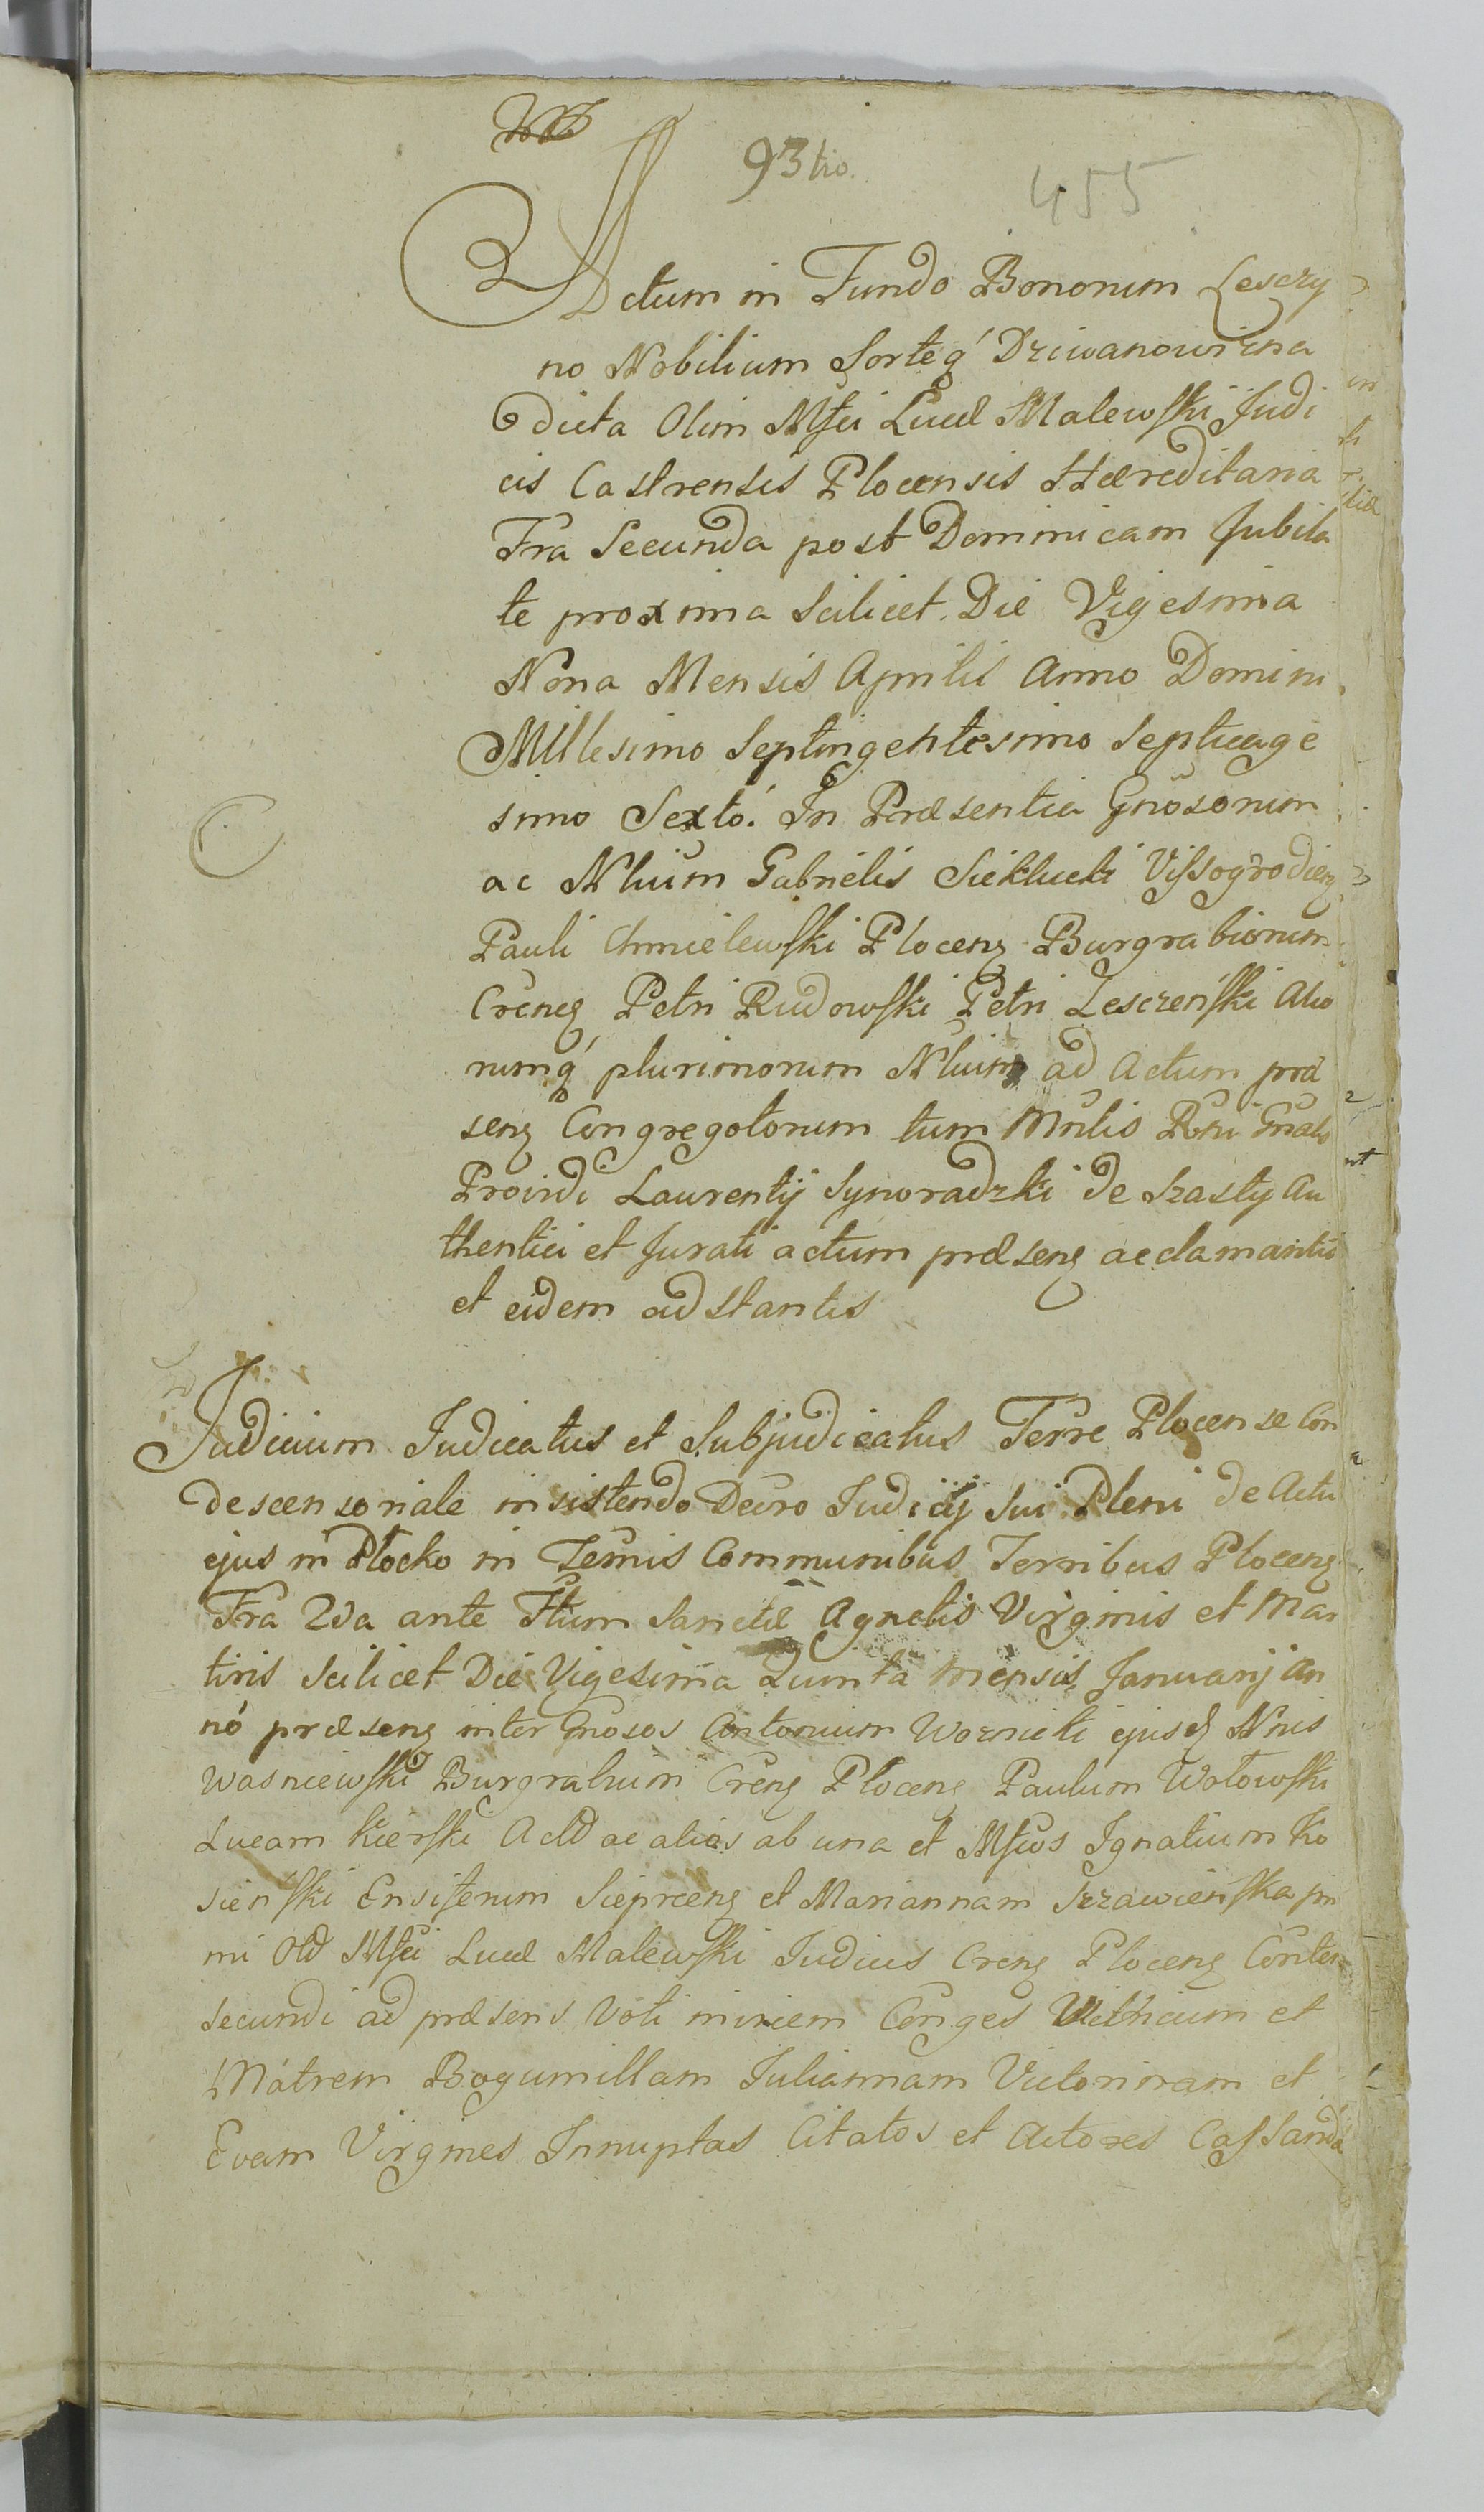 93tio.
455
Actum in Fundo Bonorum Leszczy
no Nobilium Sorteq́ Dziwanowizna
dicta Olim Mfci Lucæ Malewski Judi
cis Castrensis Plocensis Hæreditaria
Fra Secunda post Dominicam Jubila
te proxima Scilicet Die Vigesima
Nona Mensis Aprilis Anno Domini
Millesimo Septingentesimo Septuage
simo Sexto. In Præsentia Gnosorum
ac Nlium Gabrielis Sieklucki Vissogrodien
Pauli Chmielewski Plocen Burgrabiorum
Cren Petri Rudowski Petri Lesczeński Alio
rumq́ plurimorum Nlium ad Actum præ
sens Congregatorum tum Mnlis Rgni Gnalis
Proindi Laurentij Synoradzki de Szasty Au
thentici et Jurati actum præsens acclamantis
et eidem adstantis
Judicium Judicatus et Subjudicatus Terre Plocense Con
descensoriale insistendo Decro Judicij Sui Pleni de Actu
ejus in Płocko in Termis Communibus Terribus Plocen
Fra 2da ante Ftum Sanctæ Agnetis Virginis et Mar
tiris Scilicet Die Vigesima Quinta Mensis Januarij An
nó præsen inter Gnosos Antonium Woznicki ejusd Nnis
Wasniewski Burgrabium Cren Plocen Paulum Wolowski
Lucam Kierski Act ac alios ab una et Mfcos Ignatium Ko
sieński Ensiferum Sieprcen et Mariannam Szzawieńska pri
mi Old Mfci Lucæ Malewski Judicis Cren Plocen Conten
secundi ad præsens Voti invicem Conges Vitricum et
Matrem Bogumillam Juliannam Victorinam et
Evam Virgines Innuptas Citatos et Actores Cassando